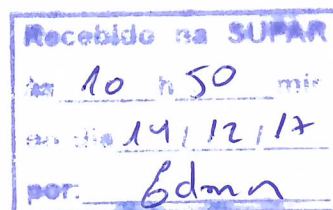 Recebido na SUPAR
às 10 h 50 min
no dia 14/12/17
por: